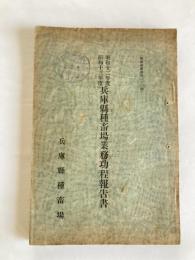 昭和十二年度
昭和十三年度
兵庫縣種畜場業務功程報告書
兵庫縣種畜場